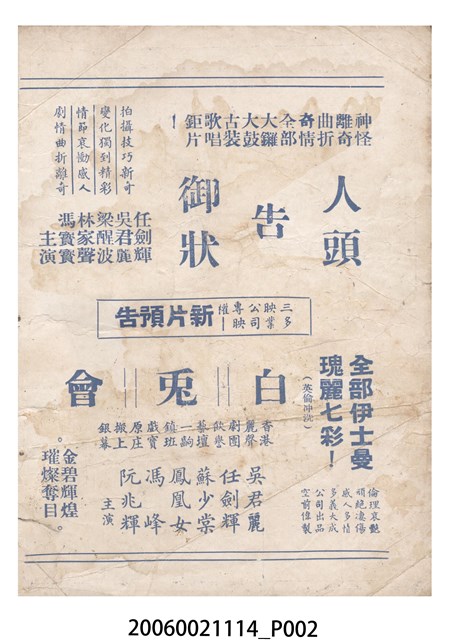 神怪
離奇
曲折
奇情
全部
大鑼
大鼓
古裝
歌唱
鉅片
!
人頭
告
御狀
拍攝技巧新奇
變化獨到精彩
情節哀慟感人
劇情曲折離奇
任劍輝
吳君麗
梁醒波
林家聲
馮寶寶
主演
三多
映業
公司
專映
權
新片預告
全部伊士曼
瑰麗七彩!
(英倫沖洗)
倫理哀艷
頑絕凄傷
感人多情
多義大成
公司出品
空前偉製
白兎會
香港
麗聲
劇團
飲譽
藝壇
一齣
鎮班
戲寶
原庄
搬上
銀幕
吳君麗
任劍輝
蘇少棠
鳳凰女
馮峰
阮兆輝
主演
金碧輝煌。
璀燦奪目。
20060021114_P002